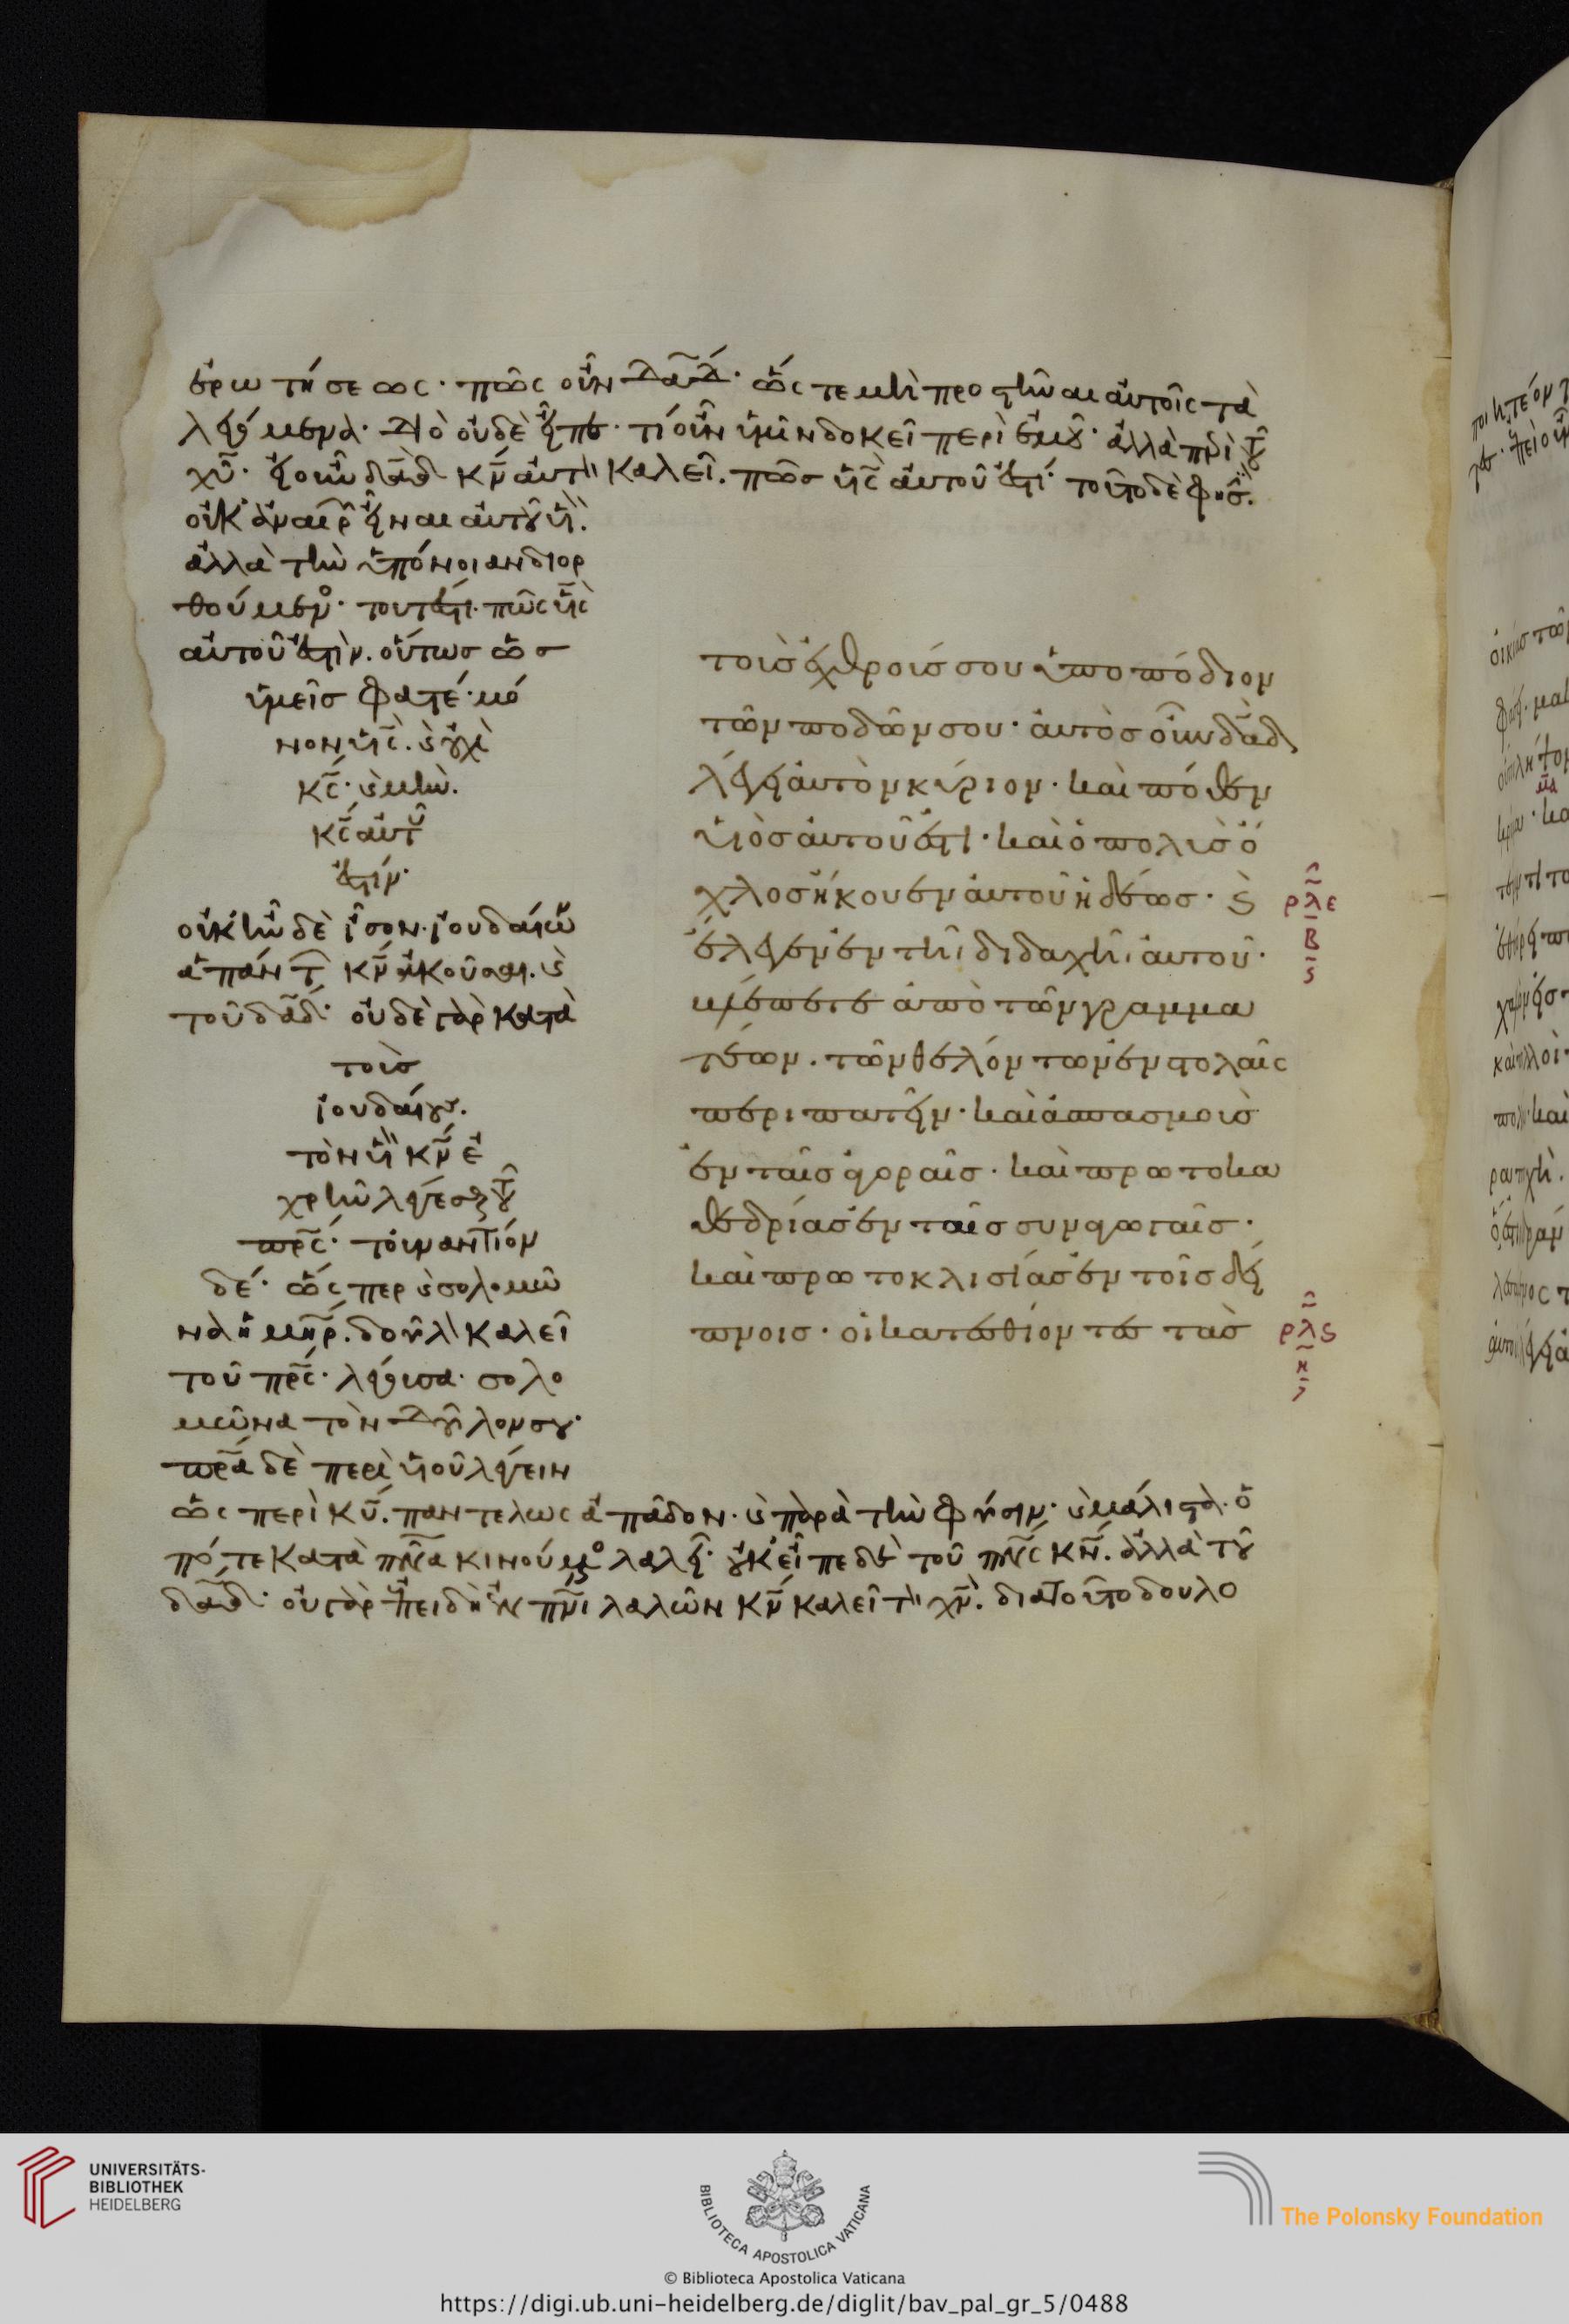 ἐρωτήσεως· πῶς οὖν δᾱδ· ὥς τε μὴ προστῆναι αὐτοῖς τὰ
λεγόμενα· διὸ οὐδὲ εἶπε· τί οὖν ὑμῖν δοκεῖ περὶ ἐμοῦ· ἀλλὰ περὶ τοῦ
χῡ· εἰ οὖν δᾱδ κν̄ αὐτὸν καλεῖ. πῶσ υς̄ αὐτοῦ ἐστι· τοῦτο δὲ φησ.
οὐκ ἀναιρῶν εἶναι αὐτοῦ υν̄.
ἀλλὰ τὴν ὑπόνοιαν διορ
θούμενος· τουτέστι· πῶς υς̄
αὐτοῦ ἐστὶν. οὕτωσ ὡσ
ὑμεῖσ φατέ· μό
νον υς̄. ϗ οὐχὶ
κς̄· ϗ μὴν.
κς̄ αὐτοῦ
ἐστίν·
οὐκ ἦν δὲ ἴσον· ἰουδαίων
ἅπαντα κν̄ ἀκοῦσαι. ϗ
τοῦ δᾱδ· οὐδὲ γὰρ κατὰ
τοὺσ
ἰουδαίους.
τὸν υν̄ κν̄ ἐ
χρῆν λέγεσθαι τοῦ
πρ̄ς· τοὐναντίον
δέ· ὥς περ ϗ σολομῶ
να ἡ μηρ̄. δοῦλον καλεῖ
τοῦ πρ̄ς· λέγουσα· σολο
μῶνα τὸν δοῦλον σου·
πρ̄α δὲ περὶ υἱοῦ λέγειν
ὡς περὶ κῡ. παντελως ἀπᾶδον· ϗ παρὰ τὴν φύσιν· ϗ μάλιστα· ὁ
πό τε κατὰ πν̄α κινούμενος λαλεῖ· οὐκ εἶπε δὲ τοῦ πν̄ς κν̄. ἀλλὰ τοῦ
δᾱδ· οὐ γὰρ ἐπειδὴ ἐν πν̄ι λαλῶν κν̄ καλεῖ τὸν χν̄. διὰ τοῦτο δουλο
τοὺσ ἐχθρούσ σου ὑποπόδιον
τῶν ποδῶν σου· αὐτὸσ οὖν δᾱδ
λέγει αὐτὸν κύριον· καὶ πόθεν
υἱὸσ αὐτοῦ ἐστι· καὶ ὁ πολὺσ ὄ
χλοσ ἤκουεν αὐτοῦ ἡδέωσ· ϗ
ἔλεγεν ἐν τῆι διδαχῆι αὐτοῦ·
βλέπετε ἀπὸ τῶν γραμμα
τέων. τῶν θελόντων ἐν στολαῖς
περιπατεῖν· καὶ ἀσπασμοὺσ
ἐν ταῖσ ἀγοραῖσ· καὶ πρωτοκα
θεδρίασ ἐν ταῖσ συναγωγαῖσ·
καὶ πρωτοκλισίασ ἐν τοῖσ δεί
πνοισ· οἱ κατεσθίοντεσ τὰσ
ρλε
Β
ρλς
η
UNIVERSITÄTS-
BIBLIOTHEK
HEIDELBERG
BIBLIOTECA APOSTOLICA VATICANA
The Polonsky Foundation
© Biblioteca Apostolica Vaticana
https://digi.ub.uni-heidelberg.de/diglit/bav_pal_gr_5/0488